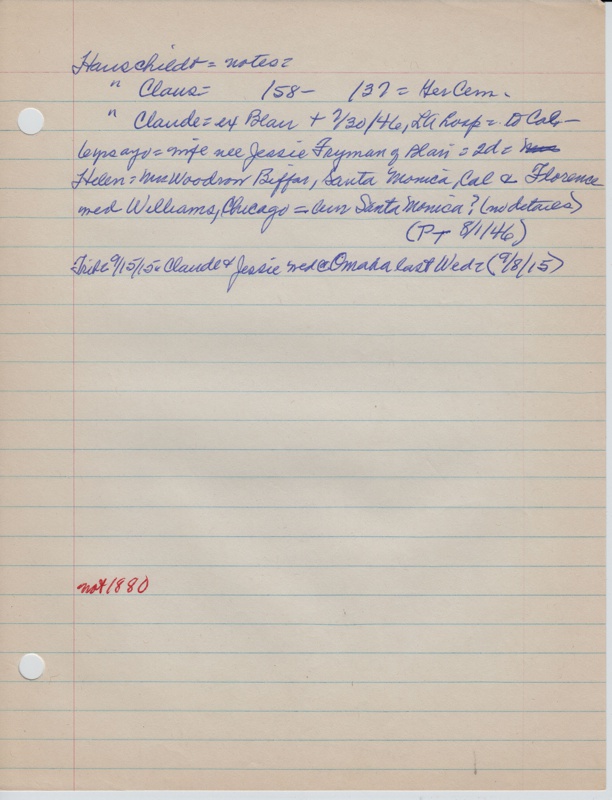 Hauschildt = notes =
" Claus = 158 - 137 = Her Cem.
" Claude = ex Blair + 7/30/46, LA Hosp = to Calif -
6 yrs ago = wife nee Jessie Fryman of Blair = 2d =
Helen = Mrs Woodrow Biffar, Santa Monica, Cal & Florence
med Williams, Chicago = bur Santa Monica? (no details)
(PT 8/1/46)
Trib = 9/15/15 = Claude & Jessie med @ Omaha last Wed = (9/8/15)
not 1880